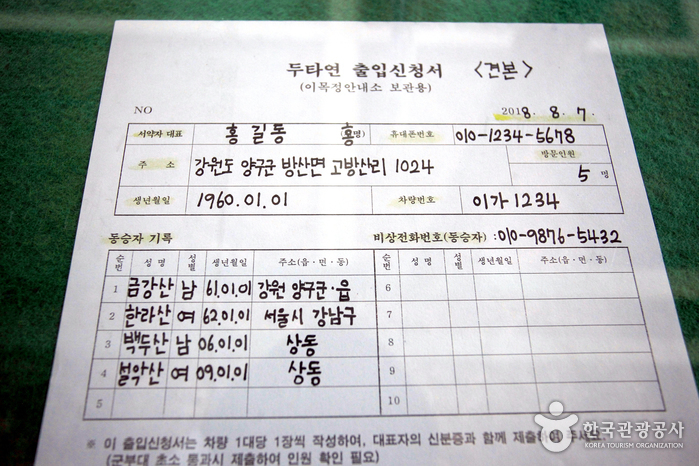 두타연 출입신청서 <견본>
(이목정안내소 보관용)
NO
2018. 8. 7.
서약자 대표 홍길동 홍 명) 휴대폰번호 010-1234-5678
주 소 강원도 양구군 방산면 고방산리 1024 방문인원 5 명
생년월일 1960.01.01 차량번호 이가 1234
동승자 기록 비상전화번호(동승자) : 010-9876-5432
순번 성 명 성별 생년월일 주소(읍·면·동) 순번 성 명 성별 생년월일 주소(읍·면·동)
1 금강산 남 61.01.01 강원 양구군·읍 6
2 한라산 여 62.01.01 서울시 강남구 7
3 백두산 남 06.01.01 상동 8
4 설악산 여 09.01.01 상동 9
5 10
※ 이 출입신청서는 차량 1대당 1장씩 작성하여, 대표자의 신분증과 함께 제출하여 주세요.
(군부대 초소 통과시 제출하여 인원 확인 필요)
한국관광공사
KOREA TOURISM ORGANIZATION